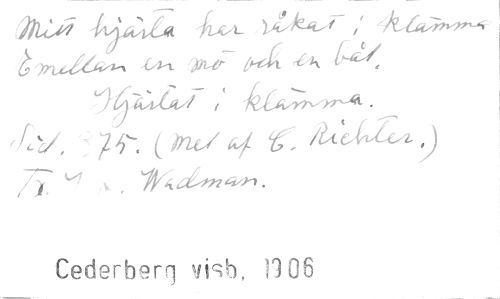 Mitt hjärta har råkat i klämma
Emellan en mö och en båt.
Hjärtat i klämma.
Sid. 375. (Mel af C. Richter.)
Tr. Wadman.
Cederberg visb, 1906